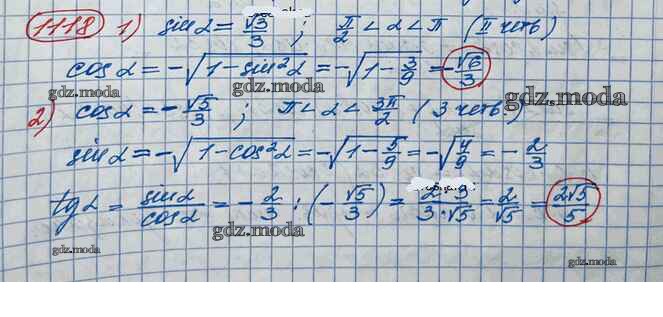 1118 1) sin α = √3/3 ; π/2 < α < π (II четв)
cos α = -√(1 - sin²α) = -√(1 - 3/9) = -√6/3
gdz.moda
gdz.moda
2) cos α = -√5/3 ; π < α < 3π/2 (3 четв.)
gdz.moda
sin α = -√(1 - cos²α) = -√(1 - 5/9) = -√(4/9) = -2/3
tg α = sin α/cos α = -2/3 : (-√5/3) = 2·3/3·√5 = 2/√5 = 2√5/5
gdz.moda
gdz.moda
gdz.moda